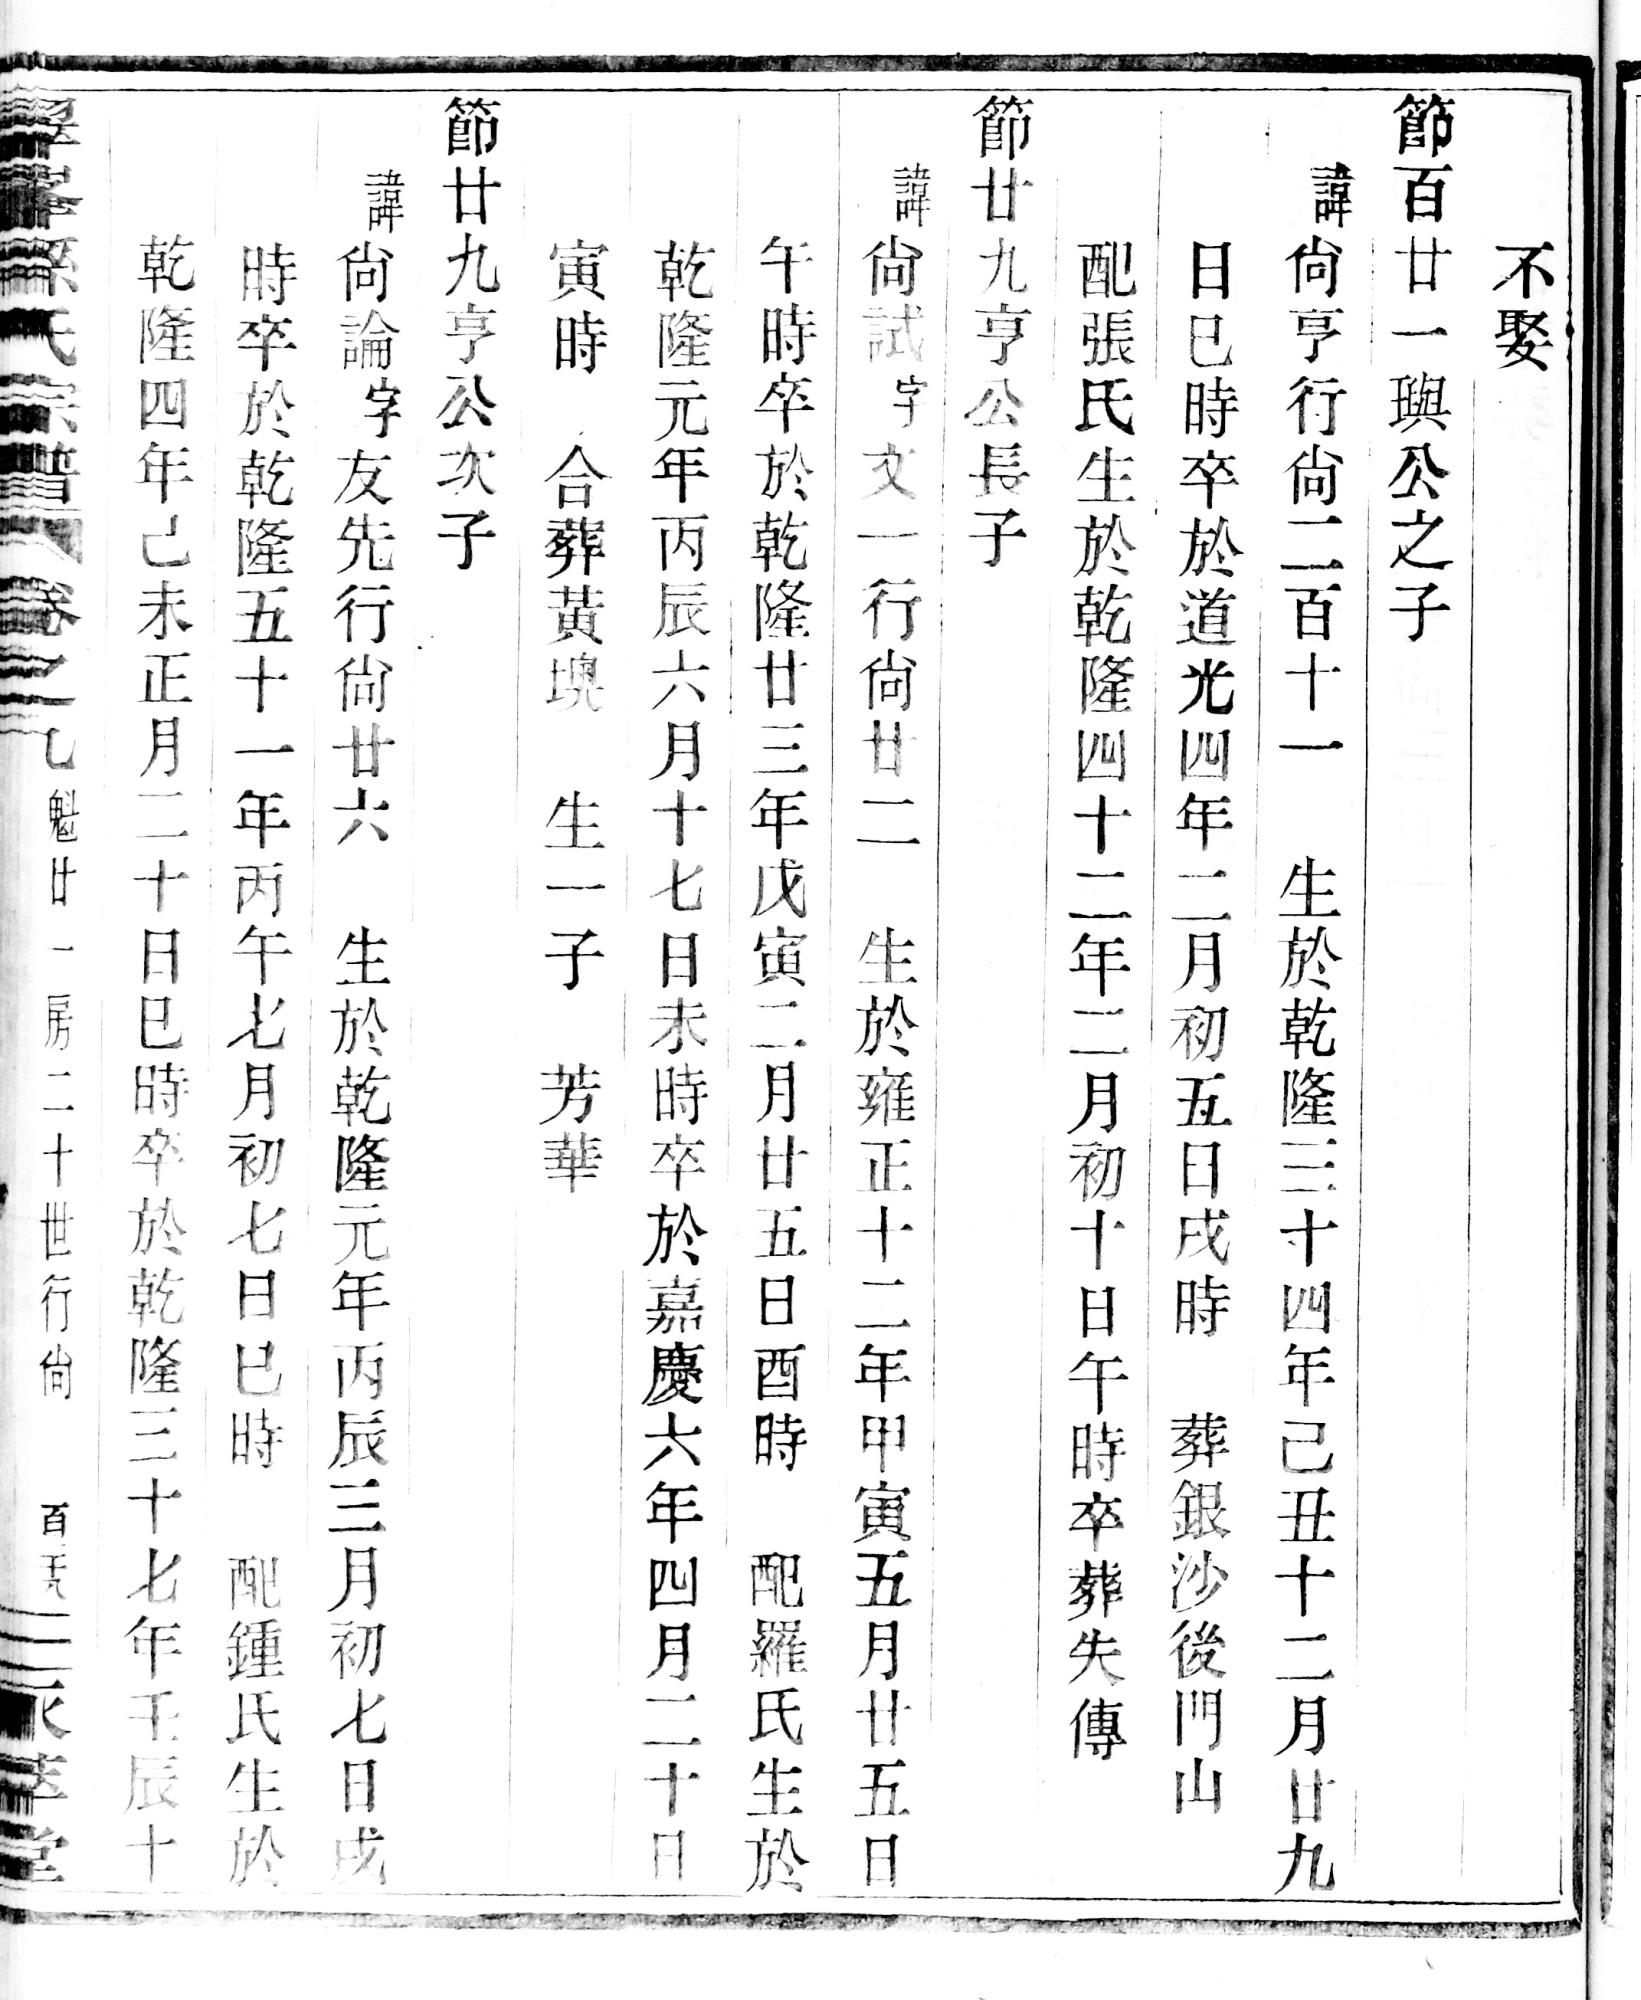 不娶
節百廿一璵公之子
諱尙亨行尙二百十一　生於乾隆三十四年己丑十二月廿九
日巳時卒於道光四年二月初五日戌時　葬銀沙後門山
配張氏生於乾隆四十二年二月初十日午時卒葬失傳
節廿九亨公長子
諱尙試字文一行尙廿二　生於雍正十二年甲寅五月廿五日
午時卒於乾隆廿三年戊寅二月廿五日酉時　配羅氏生於
乾隆元年丙辰六月十七日未時卒於嘉慶六年四月二十日
寅時　合葬黃墺　生一子　芳華
節廿九亨公次子
諱尙論字友先行尙廿六　生於乾隆元年丙辰三月初七日戌
時卒於乾隆五十一年丙午七月初七日巳時　配鍾氏生於
乾隆四年己未正月二十日巳時卒於乾隆三十七年壬辰十
氏宗譜 卷之乙 魁廿一房二十世行尙 百 堂